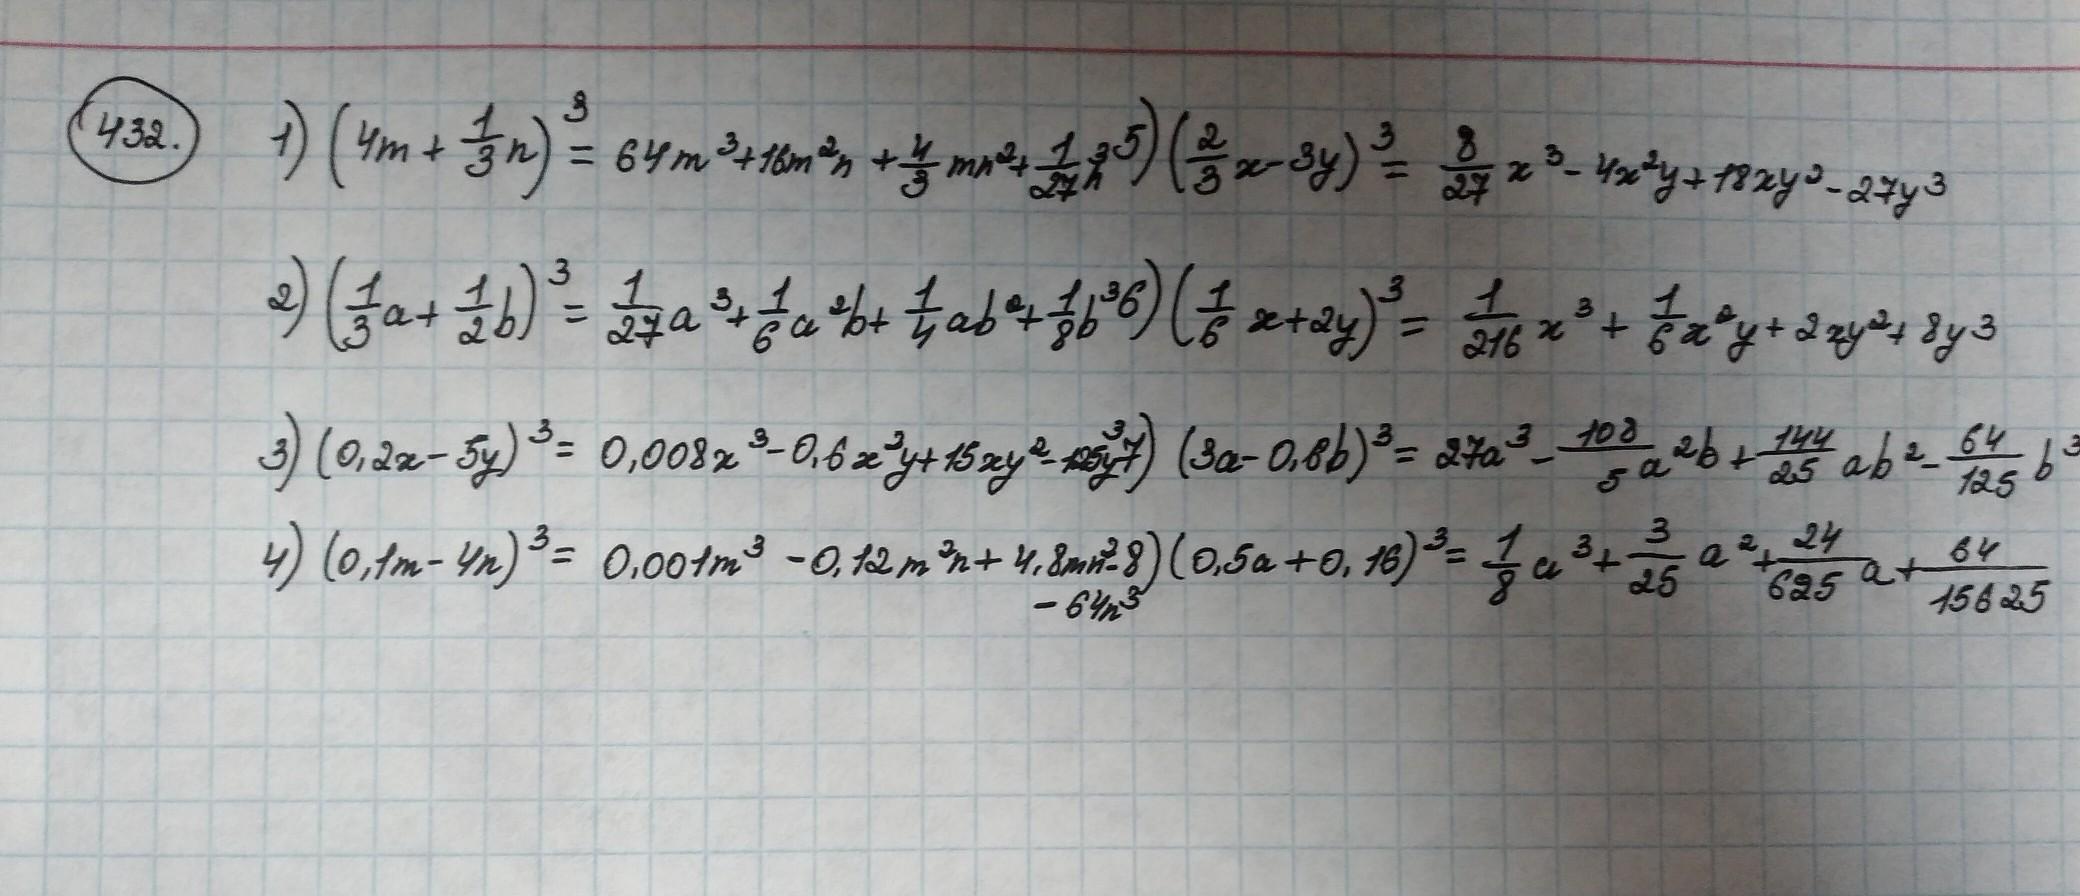 432. 1) (4m + 1/3 n)³ = 64m³ + 16m²n + 4/3 mn² + 1/27 n³ 5) (2/3 x - 3y)³ = 8/27 x³ - 4x²y + 18xy² - 27y³
2) (1/3 a + 1/2 b)³ = 1/27 a³ + 1/6 a²b + 1/4 ab² + 1/8 b³ 6) (1/6 x + 2y)³ = 1/216 x³ + 1/6 x²y + 2xy² + 8y³
3) (0,2x - 5y)³ = 0,008x³ - 0,6x²y + 15xy² - 125y³ 7) (3a - 0,8b)³ = 27a³ - 108/5 a²b + 144/25 ab² - 64/125 b³
4) (0,1m - 4n)³ = 0,001m³ - 0,12m²n + 4,8mn² - 8) (0,5a + 0,16)³ = 1/8 a³ + 3/25 a² + 24/625 a + 64/15625
- 64n³